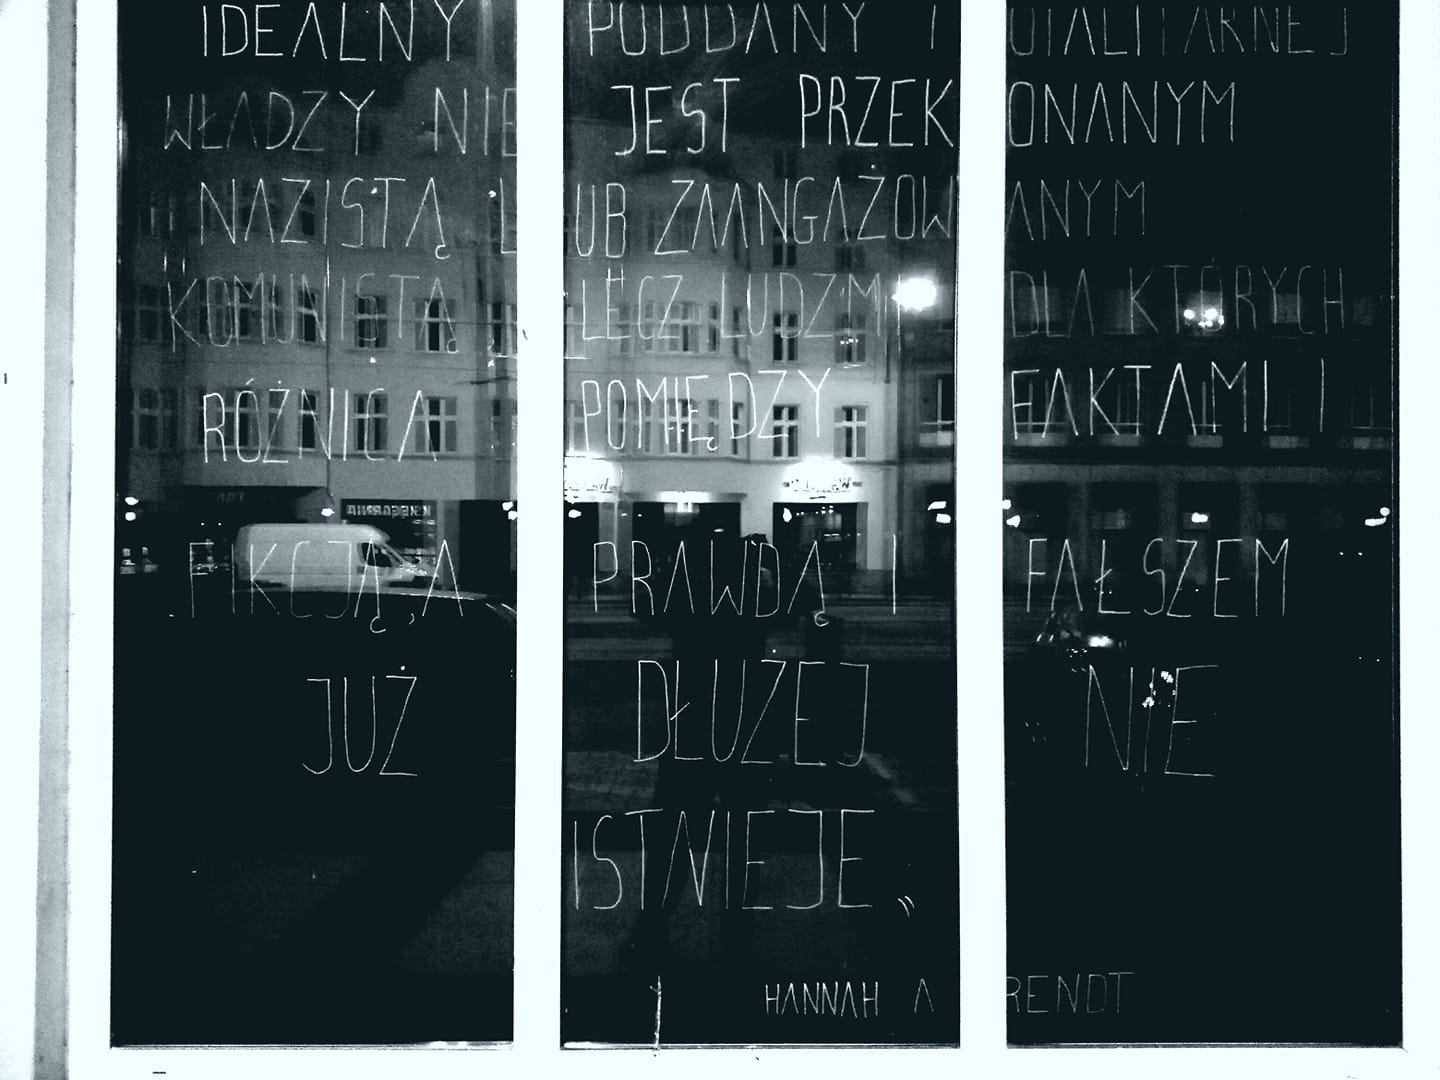 IDEALNY PODDANY TOTALITARNEJ
WŁADZY NIE JEST PRZEKONANYM
NAZISTĄ LUB ZAANGAŻOWANYM
KOMUNISTĄ, LECZ LUDZMI DLA KTÓRYCH
RÓŻNICA POMIĘDZY FAKTAMI I
FIKCJĄ, A PRAWDĄ I FAŁSZEM
JUŻ DŁUŻEJ NIE
ISTNIEJE„
HANNAH ARENDT
KSIĘGARNIA